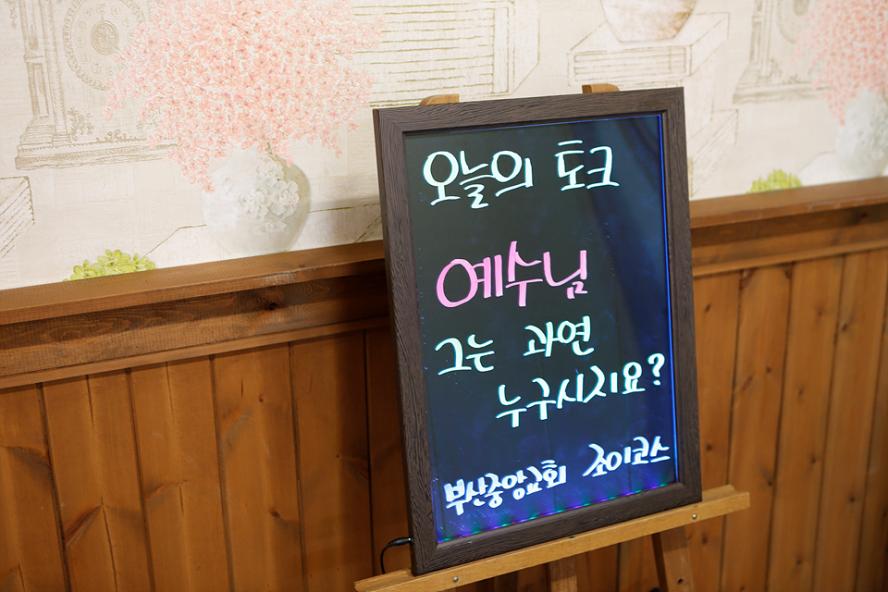 오늘의 토크
예수님
그는 과연
누구시지요?
부산중앙교회 조이코스